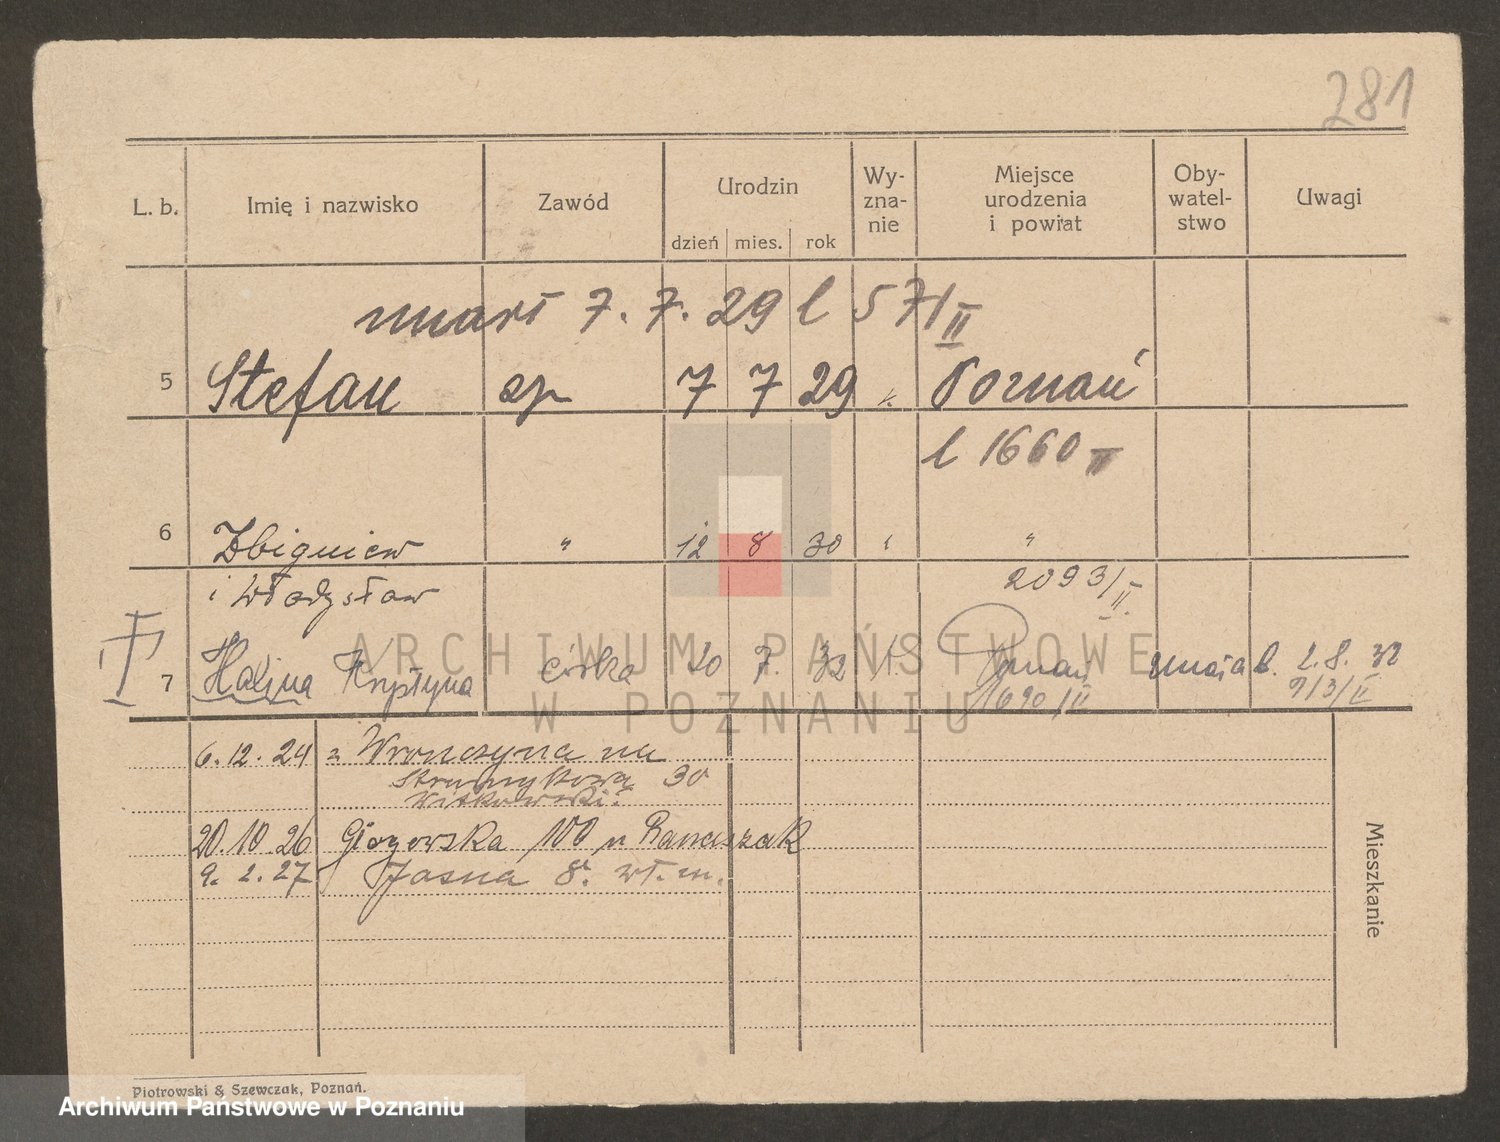 281
L. b. Imię i nazwisko Zawód Urodzin dzień mies. rok Wy-zna-nie Miejsce urodzenia i powiat Oby-watel-stwo Uwagi
umarł 7. 7. 29 l 57/II
5 Stefan syn 7 7 29 k. Poznań
l 1660 II
6 Zbigniew " 12 8 30 " "
i Władysław 2093/II.
7 Halina Krystyna córka 20 7. 32 k. Poznań zmarła 2. 8. 32
1690/II 913/II
ARCHIWUM PAŃSTWOWE
W POZNANIU
6. 12. 24 z Wronczyna na
Strumykową 30
Witkowski.
20 10 26 Głogowska 100 u Banaszak
9. 2. 27 Jasna 8. wł. m.
Mieszkanie
Piotrowski & Szewczak, Poznań.
Archiwum Państwowe w Poznaniu